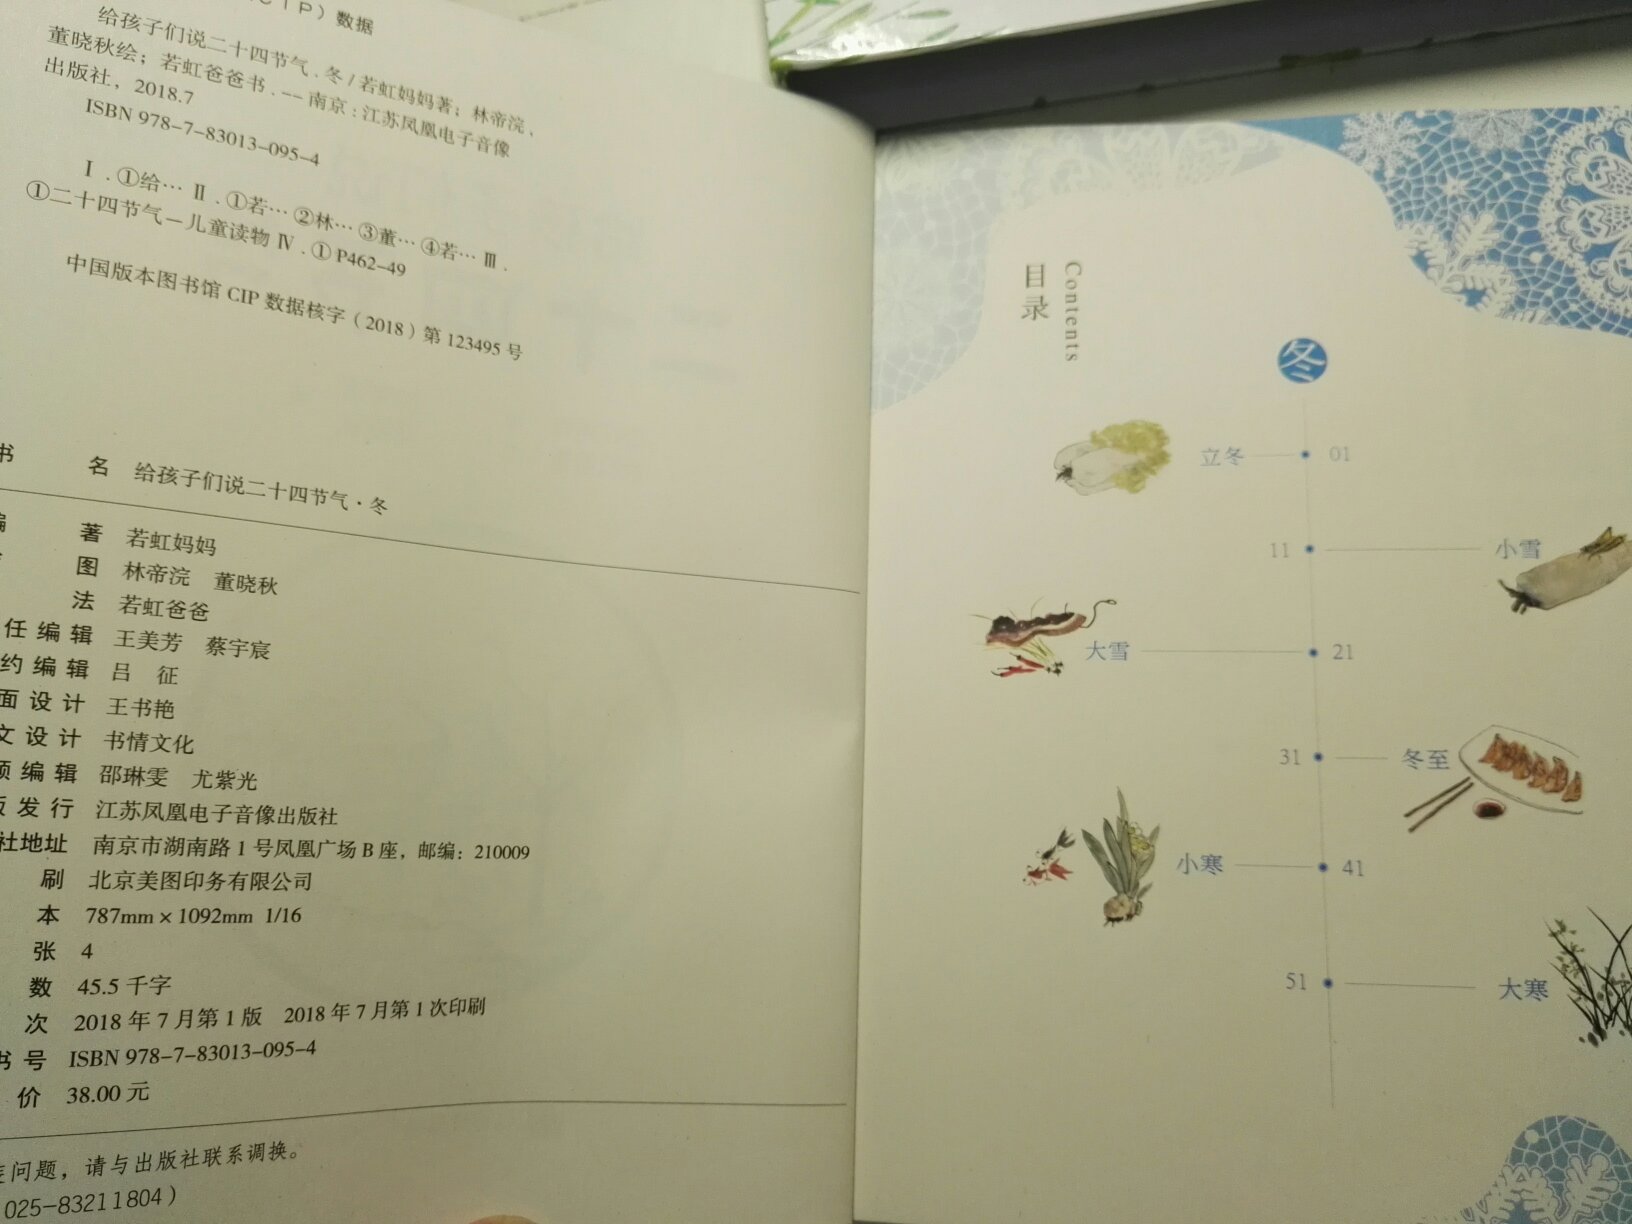 CIP）数据
给孩子们说二十四节气. 冬 / 若虹妈妈著；林帝浣、
董晓秋绘；若虹爸爸书. -- 南京 : 江苏凤凰电子音像
出版社，2018.7
ISBN 978-7-83013-095-4
Ⅰ . ①给… Ⅱ . ①若… ②林… ③董… ④若… Ⅲ .
①二十四节气－儿童读物 Ⅳ . ① P462-49
中国版本图书馆 CIP 数据核字（2018）第 123495 号
书 名 给孩子们说二十四节气·冬
编 著 若虹妈妈
图 林帝浣 董晓秋
法 若虹爸爸
任编辑 王美芳 蔡宇宸
约编辑 吕 征
面设计 王书艳
文设计 书情文化
编辑 邵琳雯 尤紫光
发行 江苏凤凰电子音像出版社
社地址 南京市湖南路 1 号凤凰广场 B 座，邮编：210009
刷 北京美图印务有限公司
本 787mm × 1092mm 1/16
张 4
数 45.5 千字
次 2018 年 7 月第 1 版 2018 年 7 月第 1 次印刷
书号 ISBN 978-7-83013-095-4
价 38.00 元
问题，请与出版社联系调换。
025-83211804）
目录
Contents
冬
立冬 01
11 小雪
大雪 21
31 冬至
小寒 41
51 大寒